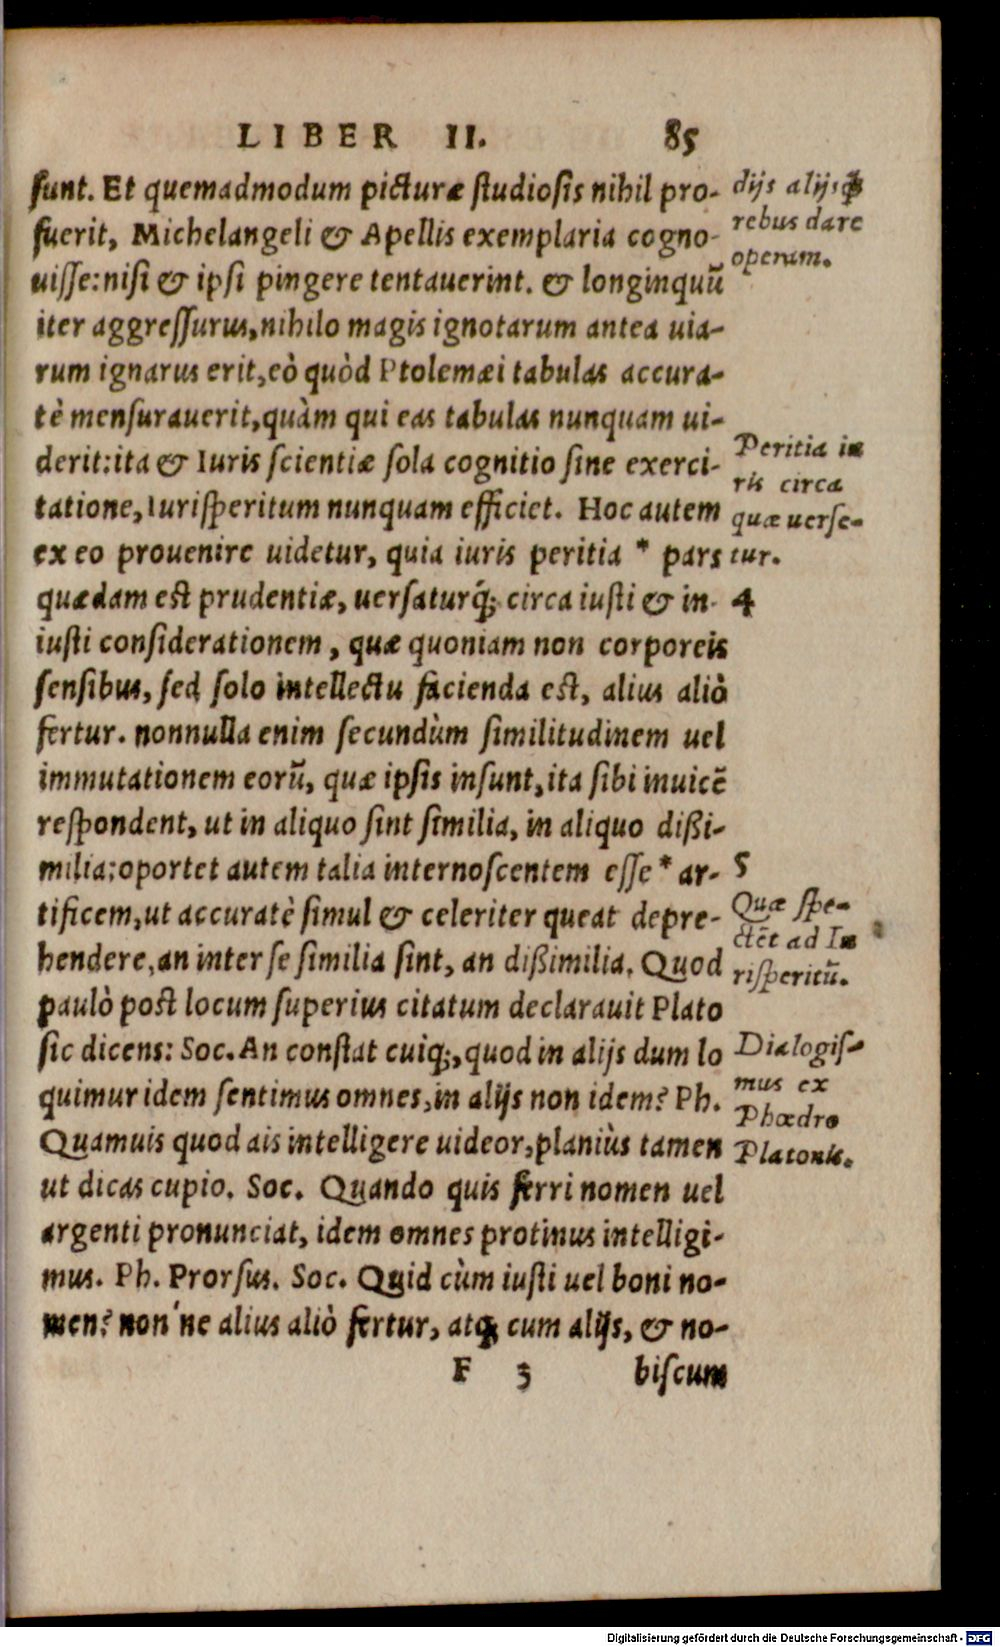 LIBER II. 85
sunt. Et quemadmodum picturæ studiosis nihil pro-
fuerit, Michelangeli & Apellis exemplaria cogno-
uisse: nisi & ipsi pingere tentauerint. & longinquũ
iter aggressurus, nihilo magis ignotarum antea uia-
rum ignarus erit, eò quòd Ptolemæi tabulas accura-
tè mensurauerit, quàm qui eas tabulas nunquam ui-
derit: ita & Iuris scientiæ sola cognitio sine exerci-
tatione, Iurisperitum nunquam efficiet. Hoc autem
ex eo prouenire uidetur, quia iuris peritia * pars
quædam est prudentiæ, uersaturq́; circa iusti & in-
iusti considerationem, quæ quoniam non corporeis
sensibus, sed solo intellectu facienda est, alius aliò
fertur. nonnulla enim secundùm similitudinem uel
immutationem eorũ, quæ ipsis insunt, ita sibi inuicẽ
respondent, ut in aliquo sint similia, in aliquo dißi-
milia: oportet autem talia internoscentem esse * ar-
tificem, ut accuratè simul & celeriter queat depre-
hendere, an inter se similia sint, an dißimilia. Quod
paulò post locum superius citatum declarauit Plato
sic dicens: Soc. An constat cuiq;, quod in alijs dum lo
quimur idem sentimus omnes, in alijs non idem? Ph.
Quamuis quod ais intelligere uideor, planiùs tamen
ut dicas cupio. Soc. Quando quis ferri nomen uel
argenti pronunciat, idem omnes protinus intelligi-
mus. Ph. Prorsus. Soc. Quid cùm iusti uel boni no-
men? non'ne alius aliò fertur, atq; cum alijs, & no-
F 3 biscum
dijs alijsq́;
rebus dare
operam.
Peritia iu
ris circa
quæ uerse-
tur.
4
5
Quæ spe-
ctẽt ad Iu
risperitũ.
Dialogis-
mus ex
Phædro
Platonis.
Digitalisierung gefördert durch die Deutsche Forschungsgemeinschaft - DFG